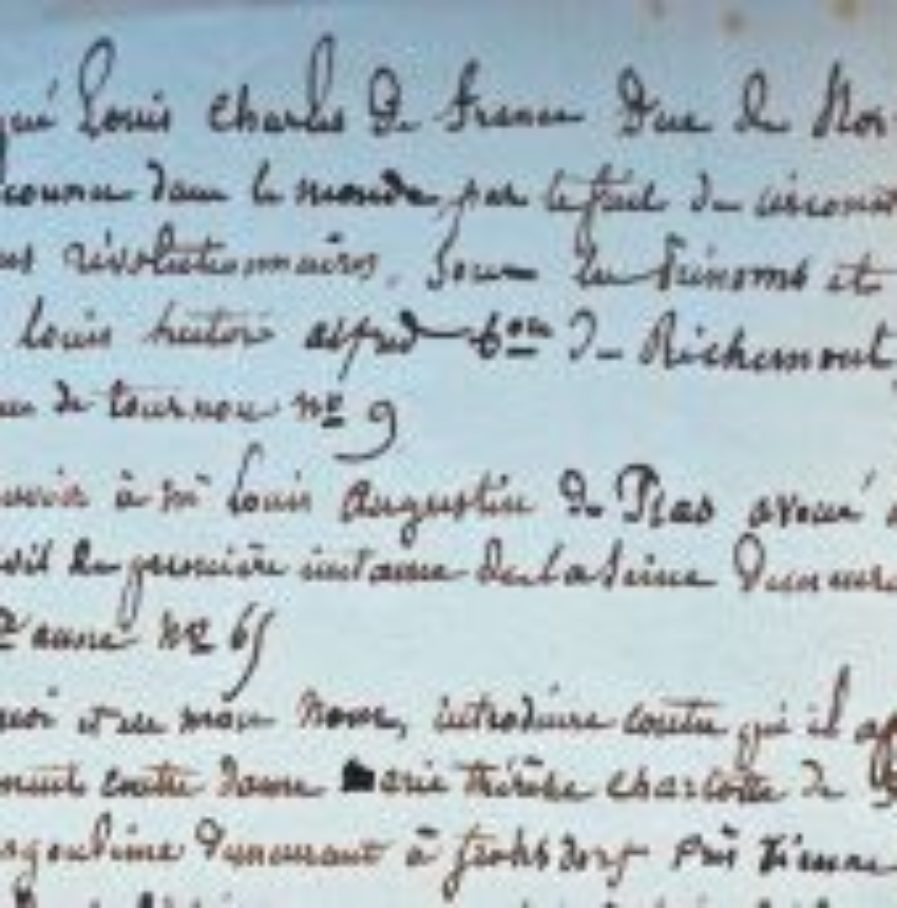 Louis Charles De France Duc De Nor-
connu dans le monde, par le fait de circonst
révolutionnaires, sous les prénoms et
louis hector alfred bon De Richemont,
de tournon no 9
à mr Louis Augustin De Plas avoué
de première instance de la Seine Demeura
anne no 65
et en mon nom, introduire contre qui il ap
contre dame Marie thérèse charlotte de
angoulème Demeurant à frohsdorf près Vienne